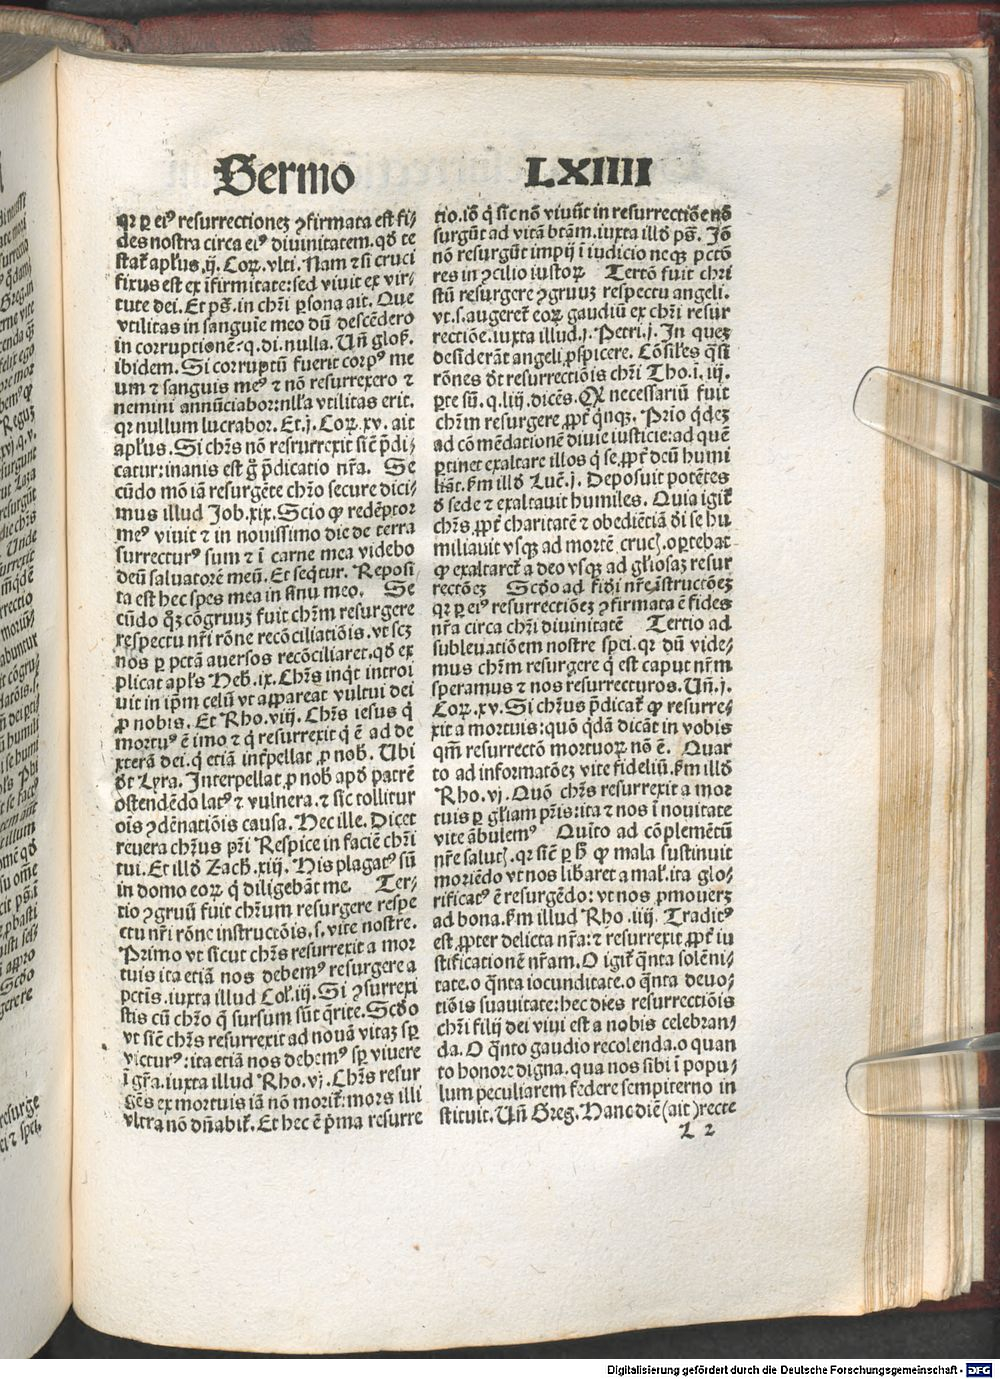 Sermo LXIIII
qꝛ ꝑ eiꝰ resurrectioneꝫ ꝯfirmata est fi⸗
des nostra circa eiꝰ diuinitatem. qđ te
staꝉ apłus .ij. Coꝝ. vlti. Nam ⁊ si cruci
fixus est ex ĩfirmitate: sed viuit ex vir⸗
tute dei. Et pš. in chr̃i ꝑsona ait. Que
vtilitas in sanguĩe meo dũ descẽdero
in corruptionẽ? q. di. nulla. Uñ gloß.
ibidem. Si corruptũ fuerit corpꝰ me
um ⁊ sanguis meꝰ ⁊ nõ resurrexero ⁊
nemini annũciabor: nłła vtilitas erit.
qꝛ nullum lucrabor. Et .j. Coꝝ. xv. ait
apłus. Si chr̃s nõ resrurrexit sič p̃di⸗
catur: inanis est g̃ p̃dicatio nr̃a. Se
cũdo mõ iã resurgẽte chr̃o secure dici⸗
mus illud Job. xix. Scio ꝙ redẽptor
meꝰ viuit ⁊ in nouissimo die de terra
surrecturꝰ sum ⁊ ĩ carne mea videbo
deũ saluatorẽ meũ. Et seq̃tur. Reposi
ta est hec spes mea in sinu meo. Se
cũdo q̃ꝫ cõgruuꝫ fuit chr̃m resurgere
respectu nr̃i rõne recõciliatiõis. vt scꝫ
nos ꝑ pctã auersos recõciliaret. qđ ex
plicat apłs Heb̃. ix. Chr̃s inq̃t introi
uit in ip̃m celũ vt appareat vultui dei
ꝓ nobis. Et Rho. viij. Chr̃s iesus q̇
mortuꝰ ẽ imo ⁊ q̇ resurrexit q̇ ẽ ad de
xterã dei. q̇ etiã intꝑpellat ꝓ nob̃. Ubi
đt Lyra. Interpellat ꝓ nob̃ apđ patrẽ
ostendẽdo latꝰ ⁊ vulnera. ⁊ sič tollitur
oĩs ꝯdẽnatiõis causa. Hec ille. Dicet
reuera chr̃us pr̃i Respice in faciẽ chr̃i
tui. Et illđ Zach. xiij. His plagatꝰ sũ
in domo eoꝝ q̇ diligebãt me. Ter⸗
tio ꝯgruũ fuit chr̃um resurgere respe
ctu nr̃i rõne instructiõis. s. vite nostre.
Primo vt sicut chr̃s resurrexit a mor
tuis ita etiã nos debemꝰ resurgere a
pctĩs. iuxta illud Coł. iij. Si ꝯsurrexi
stis cũ chr̃o q̃ sursum sũt q̃rite. Scđo
vt sič chr̃s resurrexit ad nouã vitaꝫ sꝑ
victurꝰ: ita etiã nos debemꝰ sꝑ viuere
ĩ gr̃a. iuxta illud Rho. vj. Chr̃s resur
gẽs ex mortuis iã nõ moriꝉ: mors illi
vltra nõ dñabiꝉ. Et hec ẽ p̃ma resurre
tio. iõ q̇ sič nõ viuũt in resurrectiõe nõ
surgũt ad vitã bt̃am. iuxta illđ pš. Jõ
nõ resurgũt impij ĩ iudicio neqꝫ pctõ
res in ꝯcilio iustoꝝ Tertõ fuit chri
stũ resurgere ꝯgruuꝫ respectu angeli.
vt .s. augereꝉ eoꝝ gaudiũ ex chr̃i resur
rectiõe. iuxta illud .j. Petri. j. In queꝫ
desiderãt angeli ꝓspicere. Cõsiles q̃si
rõnes đt resurrectiõis chr̃i Tho. i. iij.
ꝑte sũ. q. liij. dicẽs. Ꝙ necessariũ fuit
chr̃m resurgere ꝓpꝉ q̃nqꝫ. Prio q̇deꝫ
ad cõmẽdationẽ diuĩe iusticie: ad quẽ
ꝑtinet exaltare illos q̇ se ꝓpꝉ deũ humi
liãt. ẞm illđ Luč. j. Deposuit potẽtes
đ sede ⁊ exaltauit humiles. Quia igiꝉ
chr̃s ꝓpꝉ charitatẽ ⁊ obediẽtiã đi se hu
miliauit vsqꝫ ad mortẽ cruč. oꝑtebat
ꝙ exaltareꝉ a deo vsqꝫ ad gl̃iosaꝫ resur
rectõeꝫ Scđo ad fiđi nr̃e ĩstructõeꝫ
qꝛ ꝑ eiꝰ resurrectiõeꝫ ꝯfirmata ẽ fides
nr̃a circa chr̃i diuinitatẽ Tertio ad
subleuatiõem nostre spei. qꝛ dũ vide⸗
mus chr̃m resurgere q̇ est caput nr̃m
speramus ⁊ nos resurrecturos. Uñ .j.
Coꝝ. xv. Si chr̃us p̃dicaꝉ ꝙ resurre⸗
xit a mortuis: quõ q̇dã dicãt in vobis
qm̃ resurrectõ mortuoꝝ nõ ẽ. Quar
to ad informatõeꝫ vite fideliũ. ẞm illđ
Rho. vj. Quõ chr̃s resurrexit a mor
tuis ꝑ gl̃iam pr̃is: ita ⁊ nos ĩ nouitate
vite ãbulemꝰ Quĩto ad cõplemẽtũ
nr̃e saluč. qꝛ sič ꝑ ɧ ꝙ mala sustinuit
moriẽdo vt nos libꝉaret a mał. ita glo⸗
rificatꝰ ẽ resurgẽdo: vt nos ꝓmouerꝫ
ad bona. ẞm illud Rho. iiij. Traditꝰ
est ꝓpter delicta nr̃a: ⁊ resurrexit ꝓpꝉ iu
stificationẽ nr̃am. O igiꝉ q̃nta solẽni⸗
tate. o q̃nta iocunditate. o q̃nta deuo⸗
tiõis suauitate: hec dies resurrectiõis
chr̃i filij dei viui est a nobis celebran⸗
da. O q̃nto gaudio recolenda. o quan
to honore digna. qua nos sibi ĩ popu⸗
lum peculiarem federe sempiterno in
stituit. Uñ Greg. Hanc diẽ (ait) recte
L 2
Digitalisierung gefördert durch die Deutsche Forschungsgemeinschaft - DFG